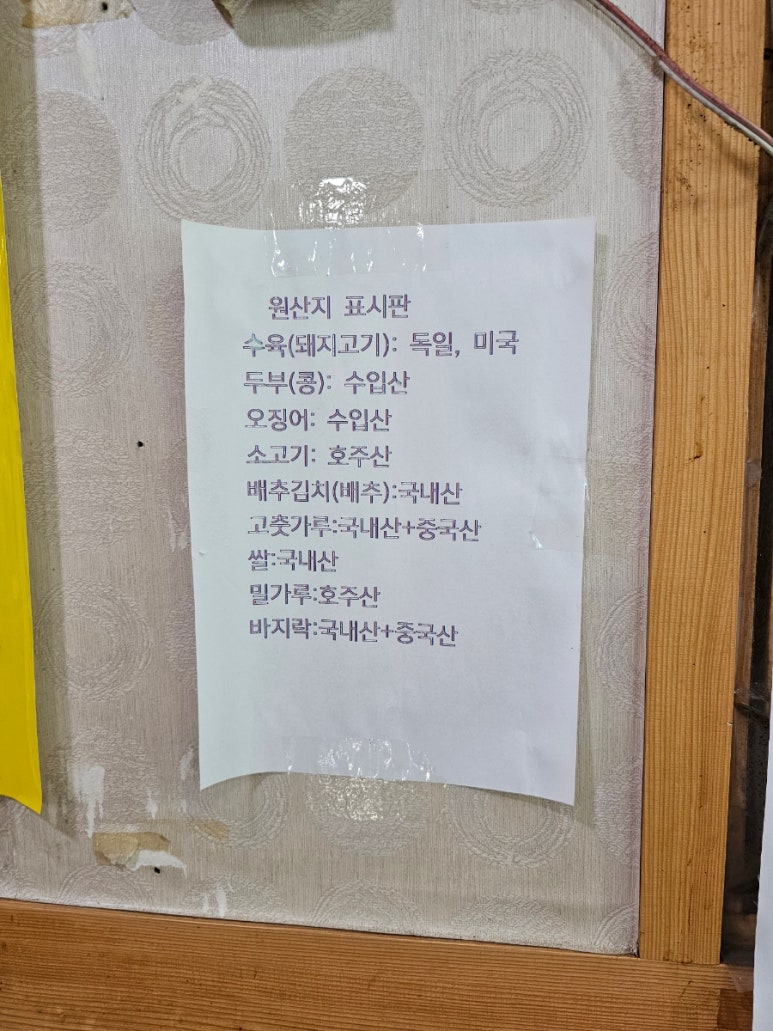 원산지 표시판
수육(돼지고기): 독일, 미국
두부(콩): 수입산
오징어: 수입산
소고기: 호주산
배추김치(배추):국내산
고춧가루:국내산+중국산
쌀:국내산
밀가루:호주산
바지락:국내산+중국산